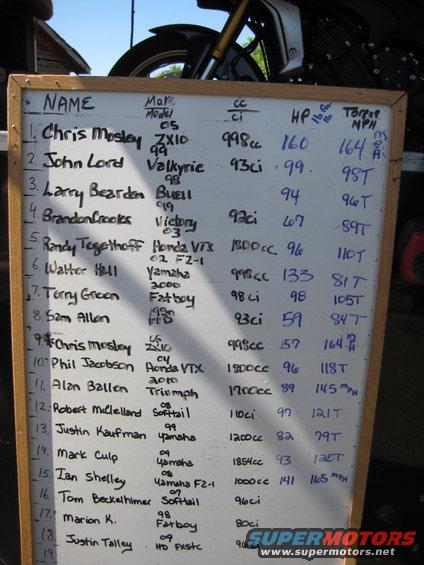 NAME Make Model cc ci HP Torque MPH
05
1. Chris Mosley ZX10 998cc 160 164 MPH
99
2. John Lord Valkyrie 93ci 99 98T
98
3. Larry Bearden Buell 94 96T
99
4. Brandon Crooks Victory 92ci 67 89T
03
5. Randy Tegethoff Honda VTX 1800cc 96 110T
02 FZ-1
6. Walter Hall Yamaha 998cc 133 81T
2000
7. Terry Green Fatboy 98ci 98 105T
8. Sam Allen HD 93ci 59 84T
05
9. Chris Mosley ZX10 998cc 157 164 MPH
04
10. Phil Jacobson Honda VTX 1800cc 96 118T
2010
11. Alan Ballen Triumph 1700cc 89 145 MPH
08
12. Robert McClelland Softail 110ci 97 121T
99
13. Justin Kaufman Yamaha 1200cc 82 79T
09
14. Mark Culp Yamaha 1854cc 93 120T
08
15. Ian Shelley Yamaha FZ-1 1000cc 141 165 MPH
07
16. Tom Beckelhimer Softail 96ci
98
17. Marion K. Fatboy 80ci
09
18. Justin Talley HD FXSTC 96ci
19.
SUPERMOTORS
www.supermotors.net